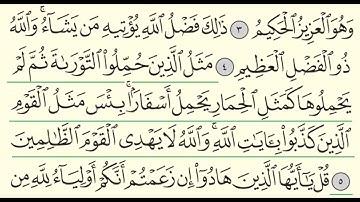 وَهُوَ ٱلْعَزِيزُ ٱلْحَكِيمُ ٣ ذَٰلِكَ فَضْلُ ٱللَّهِ يُؤْتِيهِ مَن يَشَآءُ ۚ وَٱللَّهُ
ذُو ٱلْفَضْلِ ٱلْعَظِيمِ ٤ مَثَلُ ٱلَّذِينَ حُمِّلُوا۟ ٱلتَّوْرَىٰةَ ثُمَّ لَمْ
يَحْمِلُوهَا كَمَثَلِ ٱلْحِمَارِ يَحْمِلُ أَسْفَارًۢا ۚ بِئْسَ مَثَلُ ٱلْقَوْمِ
ٱلَّذِينَ كَذَّبُوا۟ بِـَٔايَٰتِ ٱللَّهِ ۚ وَٱللَّهُ لَا يَهْدِى ٱلْقَوْمَ ٱلظَّٰلِمِينَ
٥ قُلْ يَٰٓأَيُّهَا ٱلَّذِينَ هَادُوٓا۟ إِن زَعَمْتُمْ أَنَّكُمْ أَوْلِيَآءُ لِلَّهِ مِن